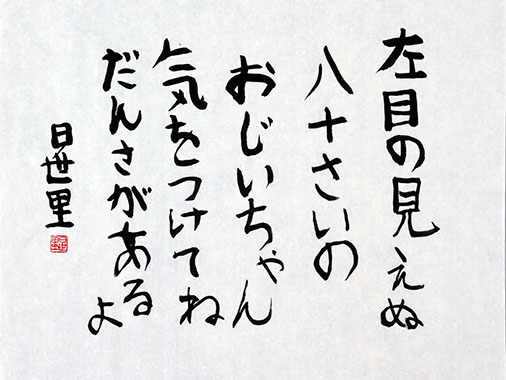 左目の見えぬ
八十さいの
おじいちゃん
気をつけてね
だんさがあるよ
日世里